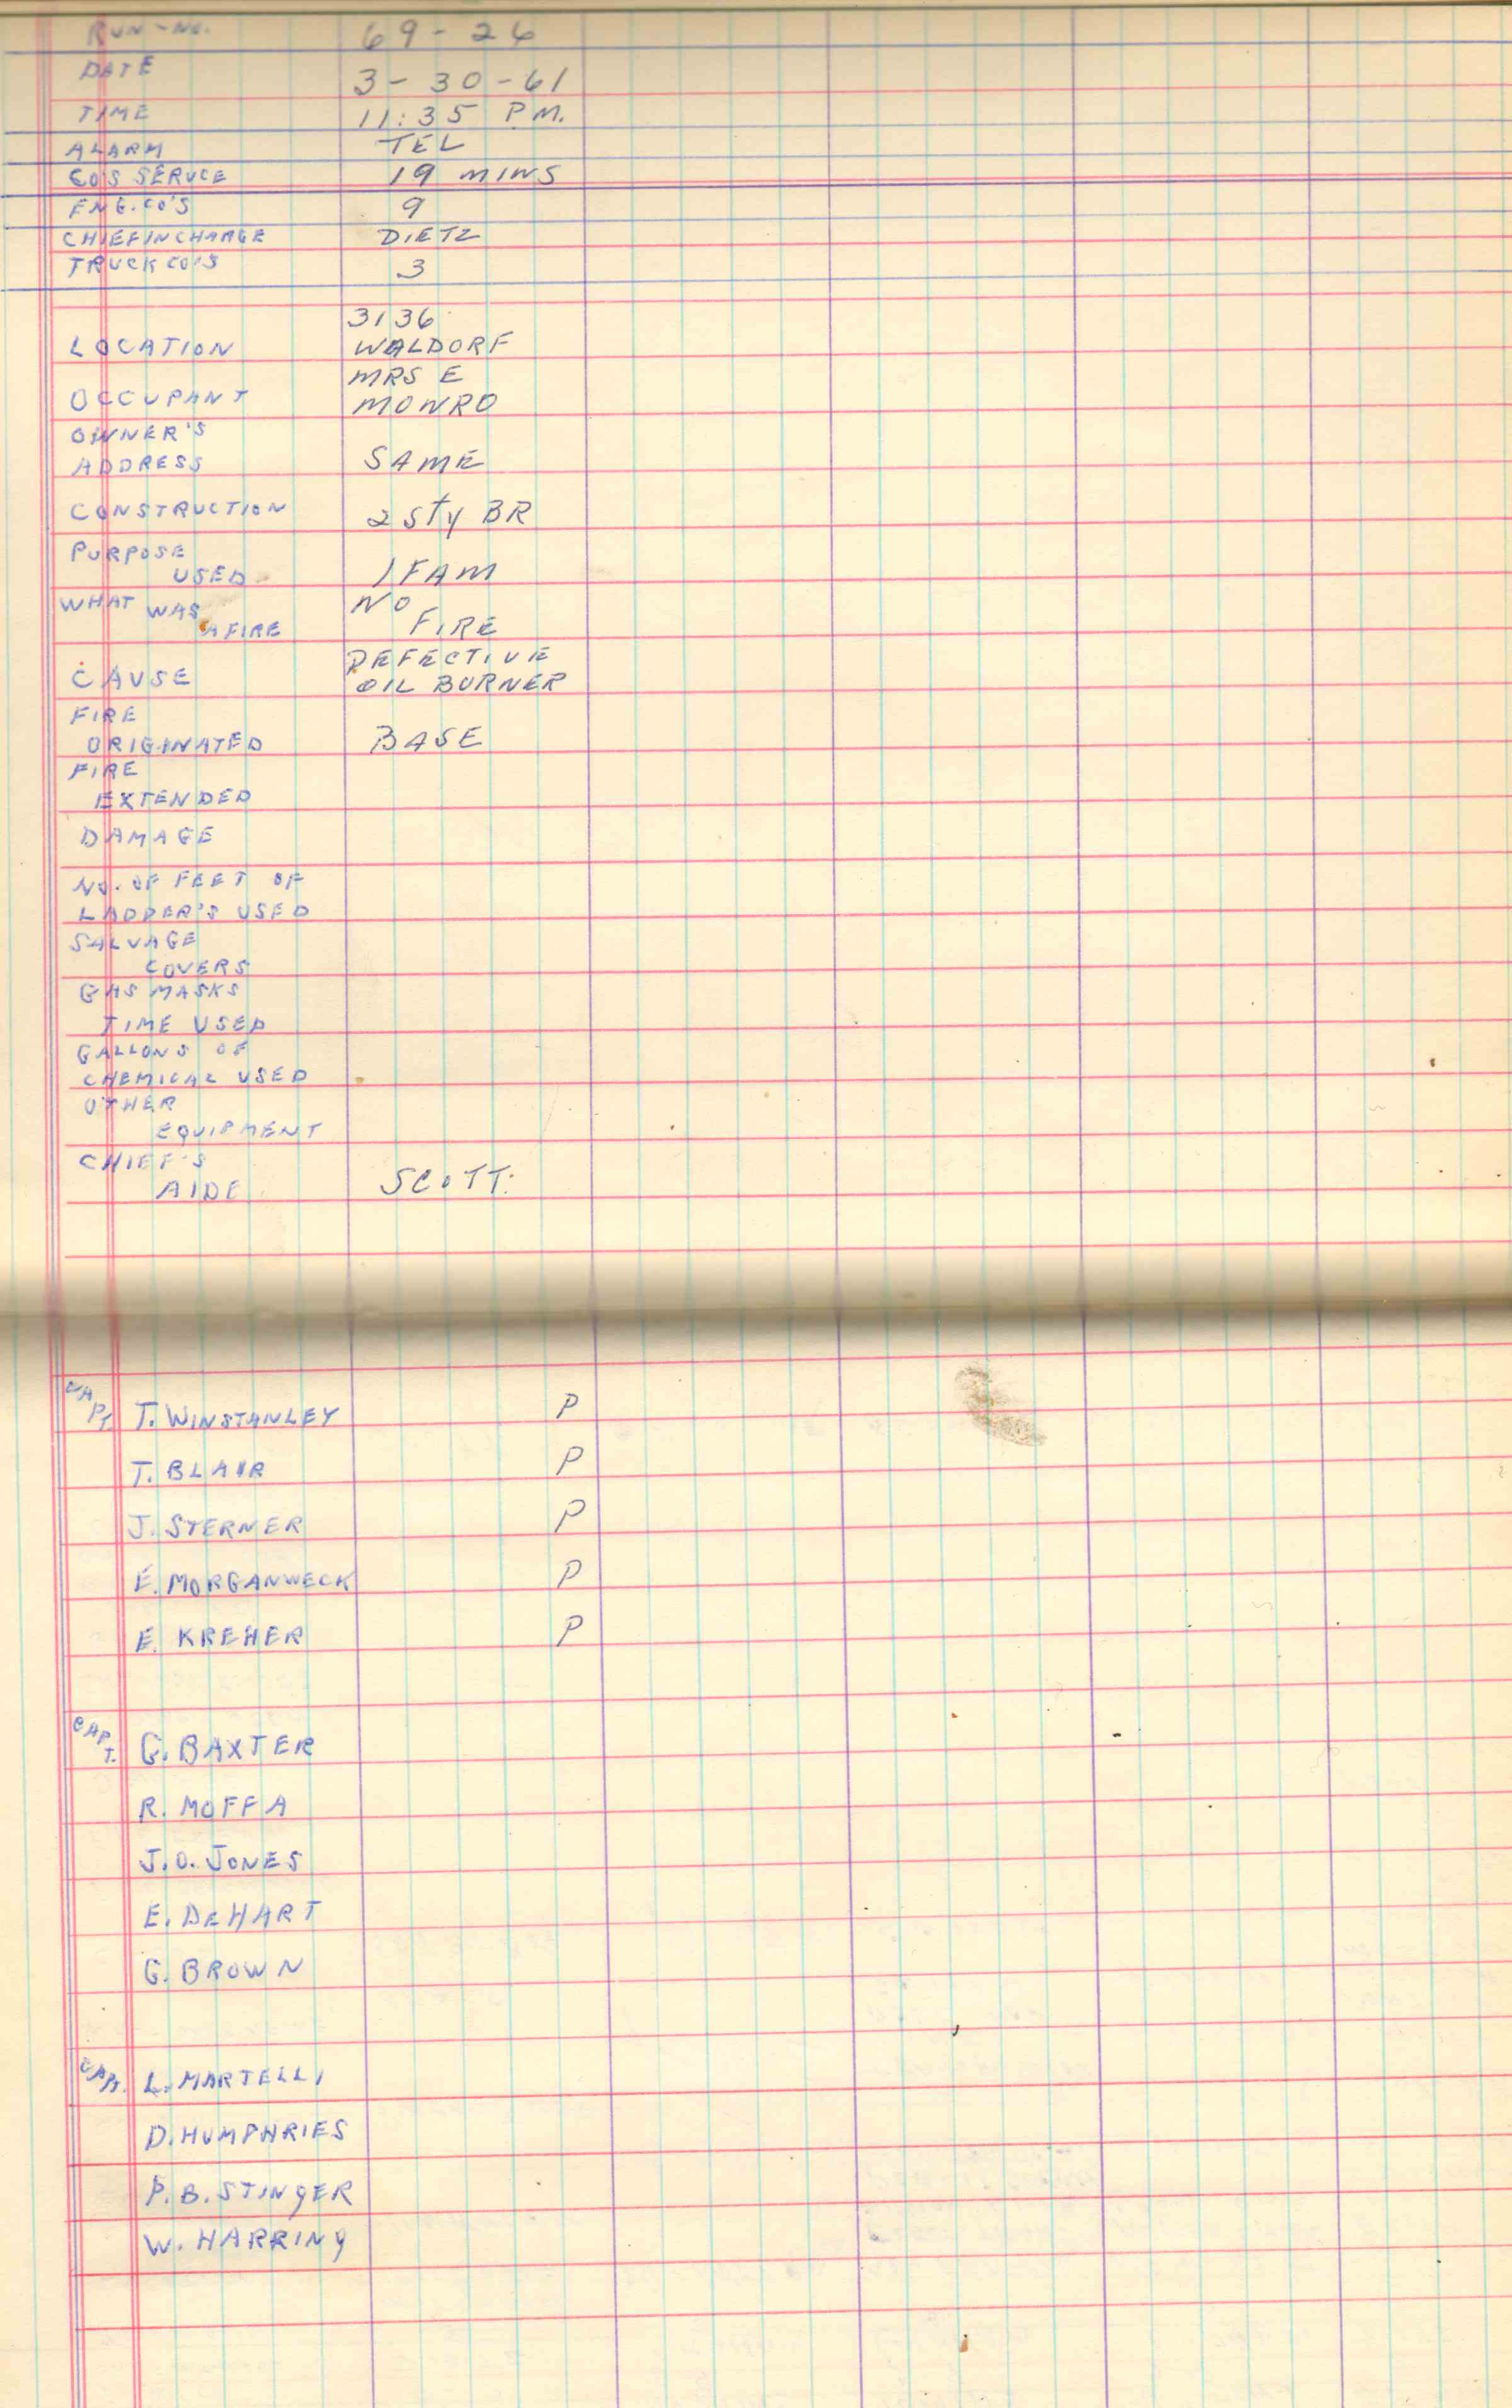 RUN-NO. 69-26
DATE 3-30-61
TIME 11:35 P.M.
ALARM TEL
CO'S SERVCE 19 MINS
ENG. CO'S 9
CHIEF IN CHARGE DIETZ
TRUCK CO'S 3
3136
LOCATION WALDORF
MRS E
OCCUPANT MONRO
OWNER'S
ADDRESS SAME
CONSTRUCTION 2 STY BR
PURPOSE
USED 1 FAM
WHAT WAS NO
A FIRE FIRE
DEFECTIVE
CAUSE OIL BURNER
FIRE
ORIGINATED BASE
FIRE
EXTENDED
DAMAGE
NO. OF FEET OF
LADDER'S USED
SALVAGE
COVERS
GAS MASKS
TIME USED
GALLONS OF
CHEMICAL USED
OTHER
EQUIPMENT
CHIEF'S
AIDE SCOTT.
CAPT. T. WINSTANLEY P
T. BLAIR P
J. STERNER P
E. MORGANWECK P
E. KREHER P
CAPT. G. BAXTER
R. MOFFA
J.O. JONES
E. DEHART
G. BROWN
CAPT. L. MARTELLI
D. HUMPHRIES
P.B. STINGER
W. HARRING